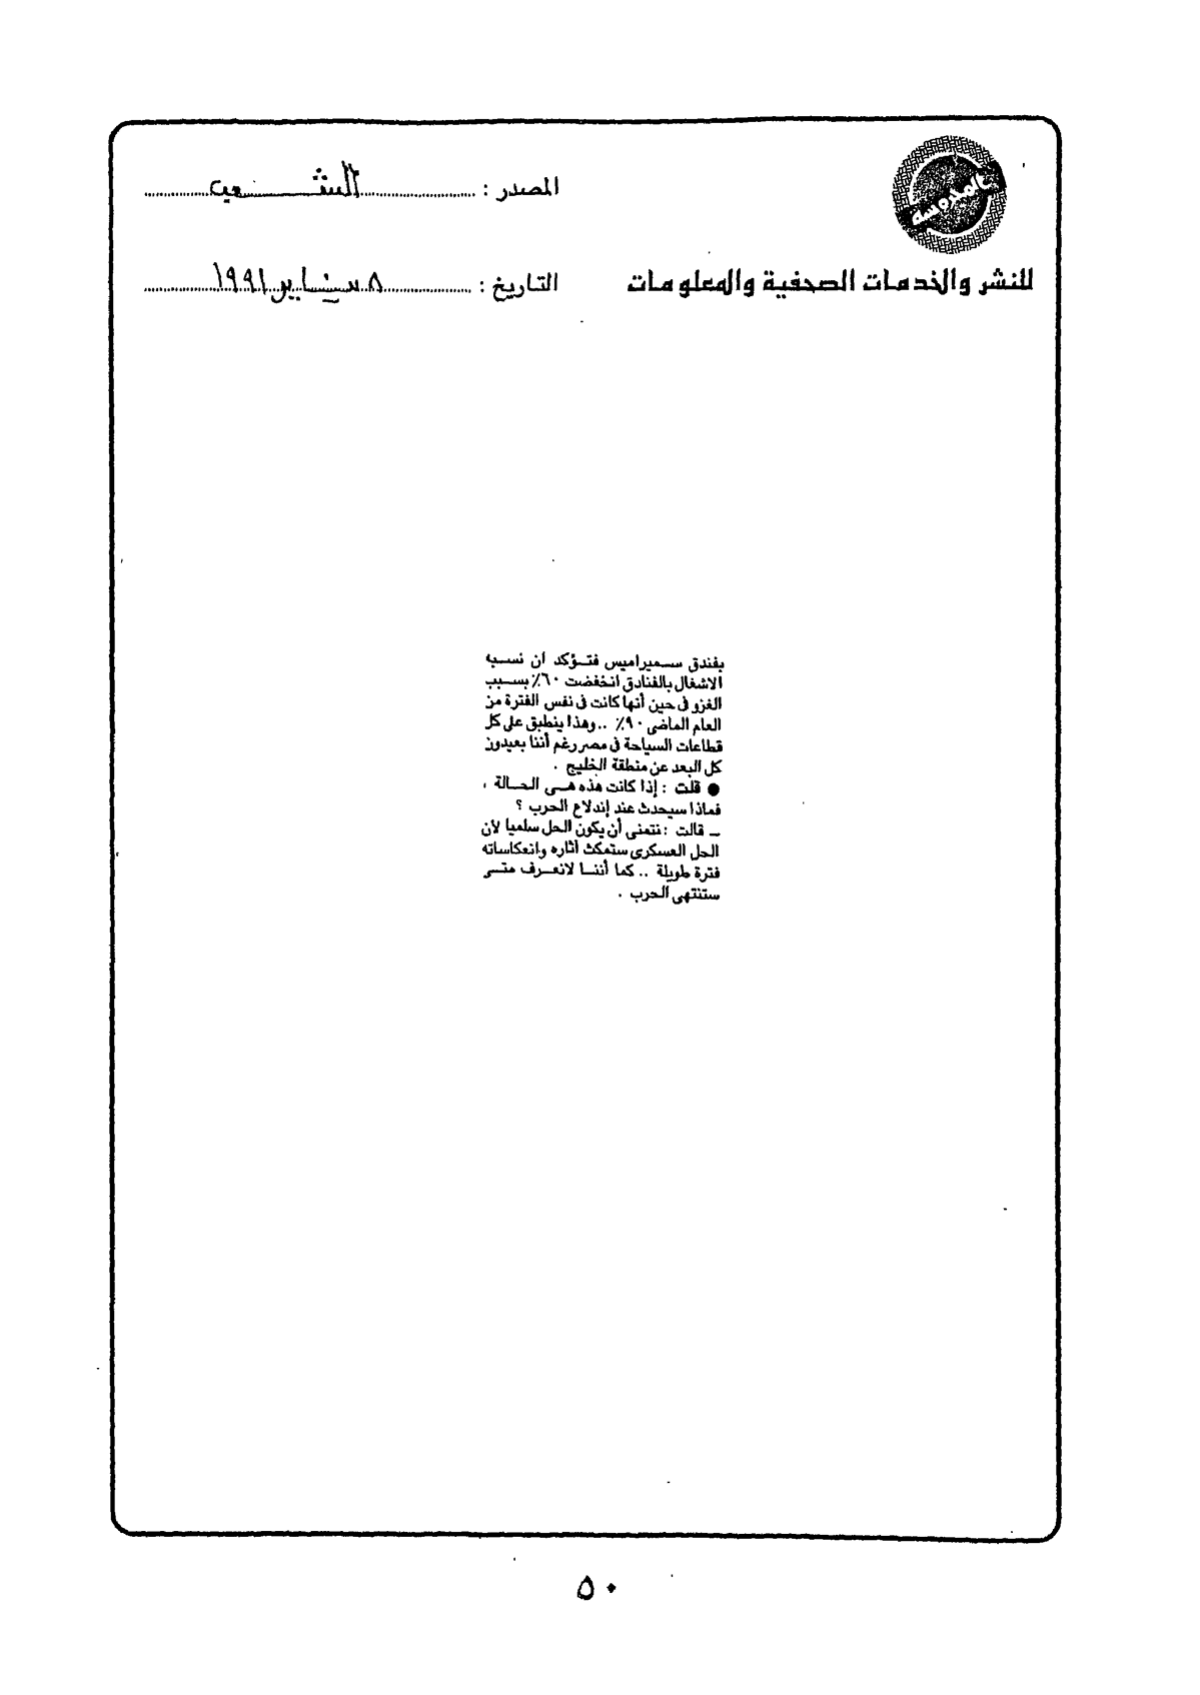 المدرسة
المصدر : الشعب
للنشر والخدمات الصحفية والمعلومات
التاريخ : ٨ يناير ١٩٩١
بفندق سميراميس فتؤكد ان نسبه
الاشغال بالفنادق انخفضت ٦٠٪ بسبب
الغزو فى حين أنها كانت فى نفس الفترة من
العام الماضى ٩٠٪ .. وهذا ينطبق على كل
قطاعات السياحة فى مصر رغم أننا بعيدون
كل البعد عن منطقة الخليج .
● قلت : إذا كانت هذه هى الحالة ،
فماذا سيحدث عند إندلاع الحرب ؟
ــ قالت : نتمنى أن يكون الحل سلميا لأن
الحل العسكرى ستمكث اثاره وانعكاساته
فترة طويلة .. كما أننا لانعرف متى
ستنتهى الحرب .
٥٠